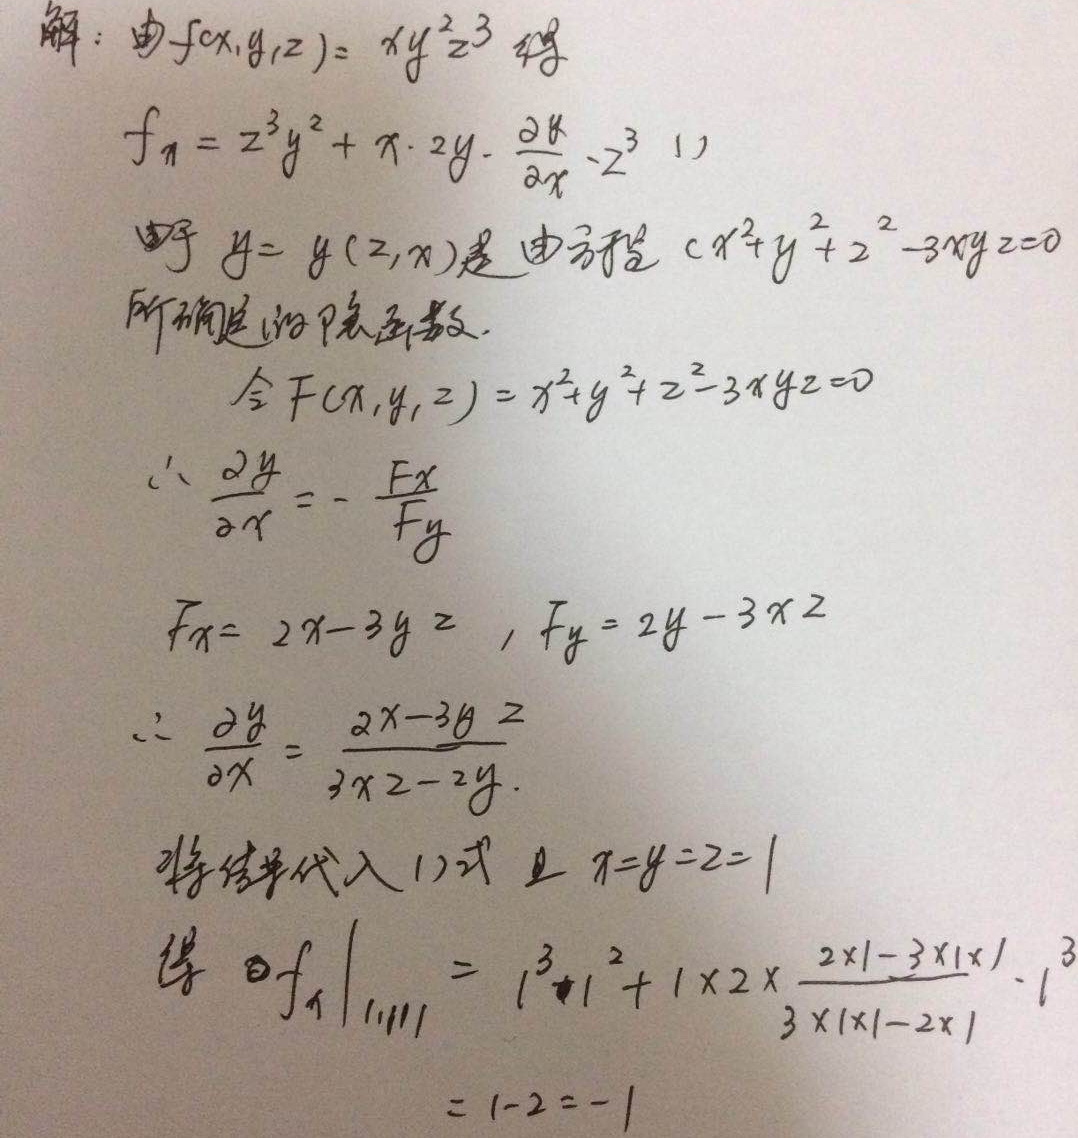 解：由f(x,y,z)= xy²z³ 得
fx = z³y² + x·2y·∂y/∂x·z³ 1)
由于 y= y(z,x)是由方程 (x²+y²+z²-3xyz=0
所确定的隐函数.
令F(x,y,z)=x²+y²+z²-3xyz=0
∴ ∂y/∂x = - Fx/Fy
Fx= 2x-3yz , Fy=2y-3xz
∴ ∂y/∂x = (2x-3yz)/(3xz-2y).
将结果代入1)式 且 x=y=z=1
得 fx|1,1,1 = 1³·1²+1×2× (2×1-3×1×1)/(3×1×1-2×1) ·1³
= 1-2=-1